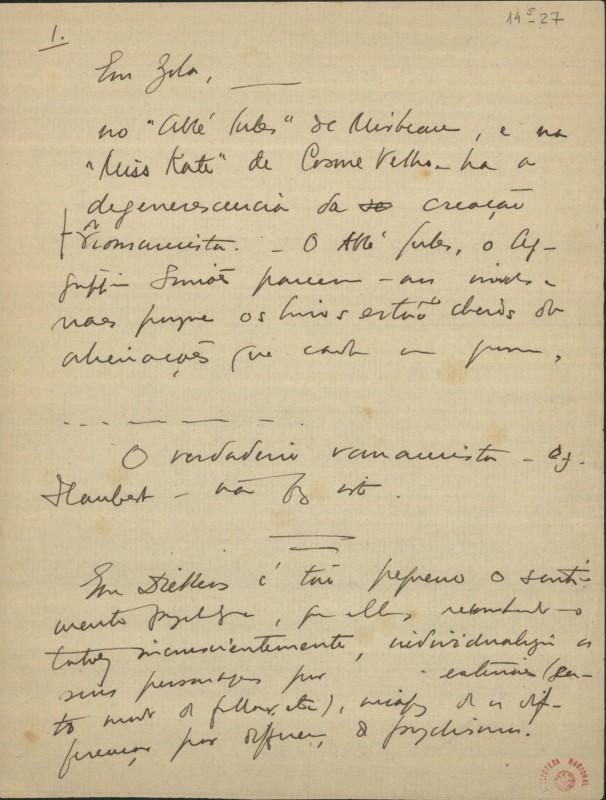 14⁵-27
1.
Em Zola, ——
no "Abbé Jules" de Mirbeau, e na
"Miss Kate" de Cosme Velho – ha a
degenerescencia da creação
romancista. – O Abbé Jules, o Ag-
parecem-nos
porque os livros estão cheios de
que cada um
O verdadeiro romancista – e.g.
Flaubert – não faz isto.
Em Dickens é tão pequeno o senti-
mento psychologico, que elle, reconhecendo-o
talvez inconscientemente, individualiza os
seus personagens por exteriores (ges-
to modo de fallar, etc), incapaz de os dif-
ferençar por differenças de psychismo.
BIBLIOTECA NACIONAL